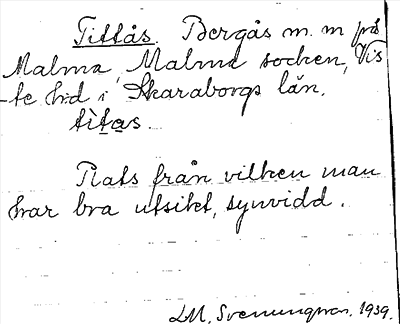 Tittås. Bergås m. m på
Malma, Malma socken, Vis
-te h:d i Skaraborgs län.
tìtas.
Plats från vilken man
har bra utsikt, synvidd.
LM, Svenungson. 1939.